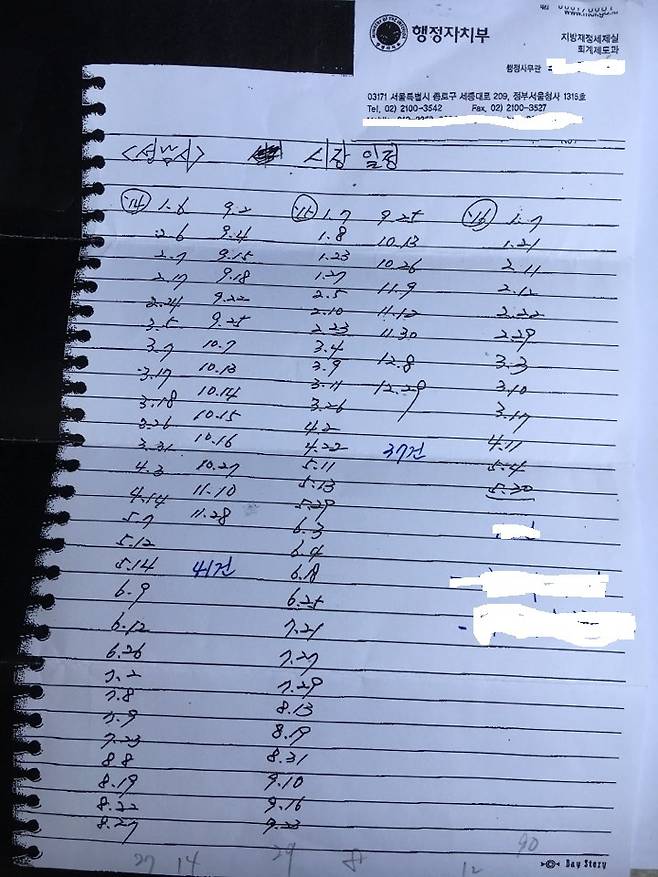 행정자치부
지방재정세제실
회계제도과
행정사무관
03171 서울특별시 종로구 세종대로 209, 정부서울청사 1315호
Tel. 02) 2100-3542 Fax. 02) 2100-3527
<성남시> 시장 일정
'14 1.6 9.2 '15 1.7 9.25 '16 1.7
2.6 9.4 1.8 10.13 1.21
2.7 9.15 1.23 10.26 2.11
2.17 9.18 1.27 11.9 2.12
2.24 9.22 2.5 11.12 2.22
3.5 9.25 2.10 11.30 2.29
3.7 10.7 2.23 12.8 3.3
3.17 10.13 3.4 12.29 3.10
3.18 10.14 3.9 3.17
3.26 10.15 3.11 4.11
3.31 10.16 3.26 37건 5.4
4.3 10.27 4.2 5.30
4.14 11.10 4.22
5.7 11.28 5.11
5.12 5.13
5.14 41건 5.29
6.9 6.3
6.12 6.4
6.26 6.18
7.2 6.25
7.8 7.21
7.9 7.27
7.23 7.29
8.8 8.13
8.19 8.19
8.22 8.31
8.27 9.10
9.16
9.23
27 14 29 8 12 90
Day Story